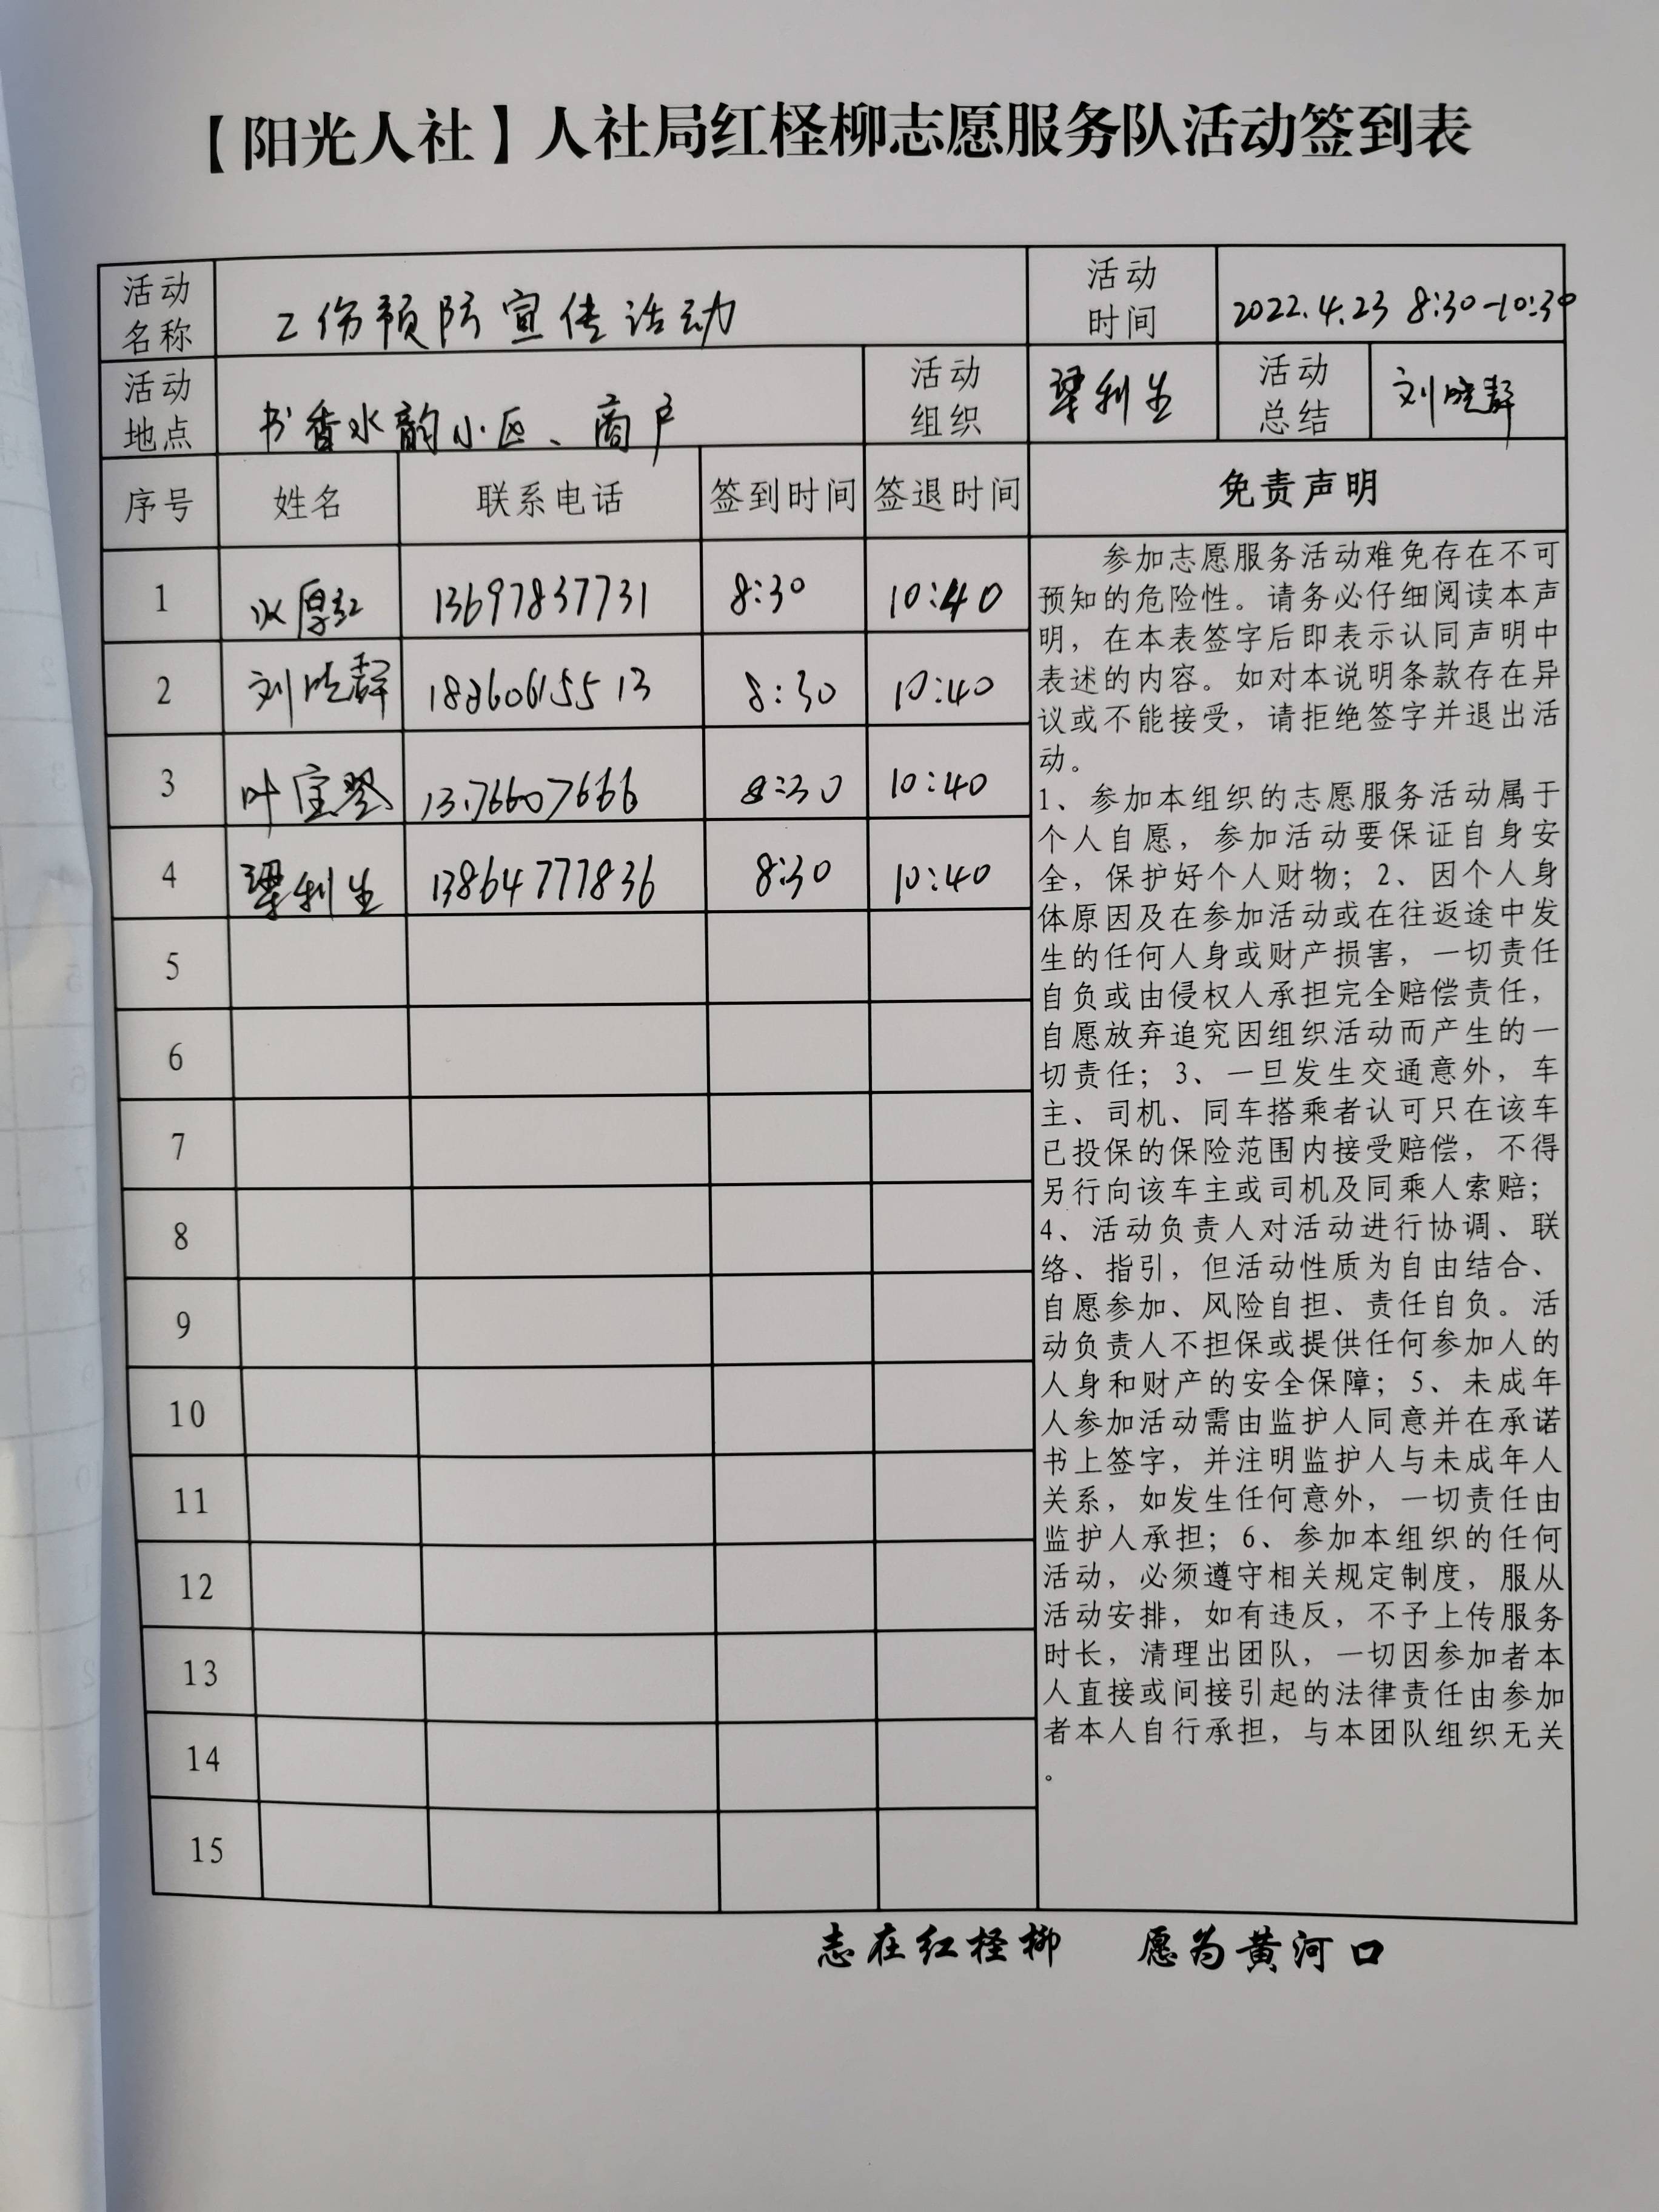 【阳光人社】人社局红柽柳志愿服务队活动签到表
活动名称 工伤预防宣传活动 活动时间 2022.4.23 8:30-10:30
活动地点 书香水韵小区、商户 活动组织 梁利生 活动总结 刘晓群
序号 姓名 联系电话 签到时间 签退时间 免责声明
1 13697837731 8:30 10:40
2 刘晓群 8:30 10:40
3 8:30 10:40
4 梁利生 13864777836 8:30 10:40
5
6
7
8
9
10
11
12
13
14
15
参加志愿服务活动难免存在不可
预知的危险性。请务必仔细阅读本声
明，在本表签字后即表示认同声明中
表述的内容。如对本说明条款存在异
议或不能接受，请拒绝签字并退出活
动。
1、参加本组织的志愿服务活动属于
个人自愿，参加活动要保证自身安
全，保护好个人财物；2、因个人身
体原因及在参加活动或在往返途中发
生的任何人身或财产损害，一切责任
自负或由侵权人承担完全赔偿责任，
自愿放弃追究因组织活动而产生的一
切责任；3、一旦发生交通意外，车
主、司机、同车搭乘者认可只在该车
已投保的保险范围内接受赔偿，不得
另行向该车主或司机及同乘人索赔；
4、活动负责人对活动进行协调、联
络、指引，但活动性质为自由结合、
自愿参加、风险自担、责任自负。活
动负责人不担保或提供任何参加人的
人身和财产的安全保障；5、未成年
人参加活动需由监护人同意并在承诺
书上签字，并注明监护人与未成年人
关系，如发生任何意外，一切责任由
监护人承担；6、参加本组织的任何
活动，必须遵守相关规定制度，服从
活动安排，如有违反，不予上传服务
时长，清理出团队，一切因参加者本
人直接或间接引起的法律责任由参加
者本人自行承担，与本团队组织无关
。
志在红柽柳 愿为黄河口